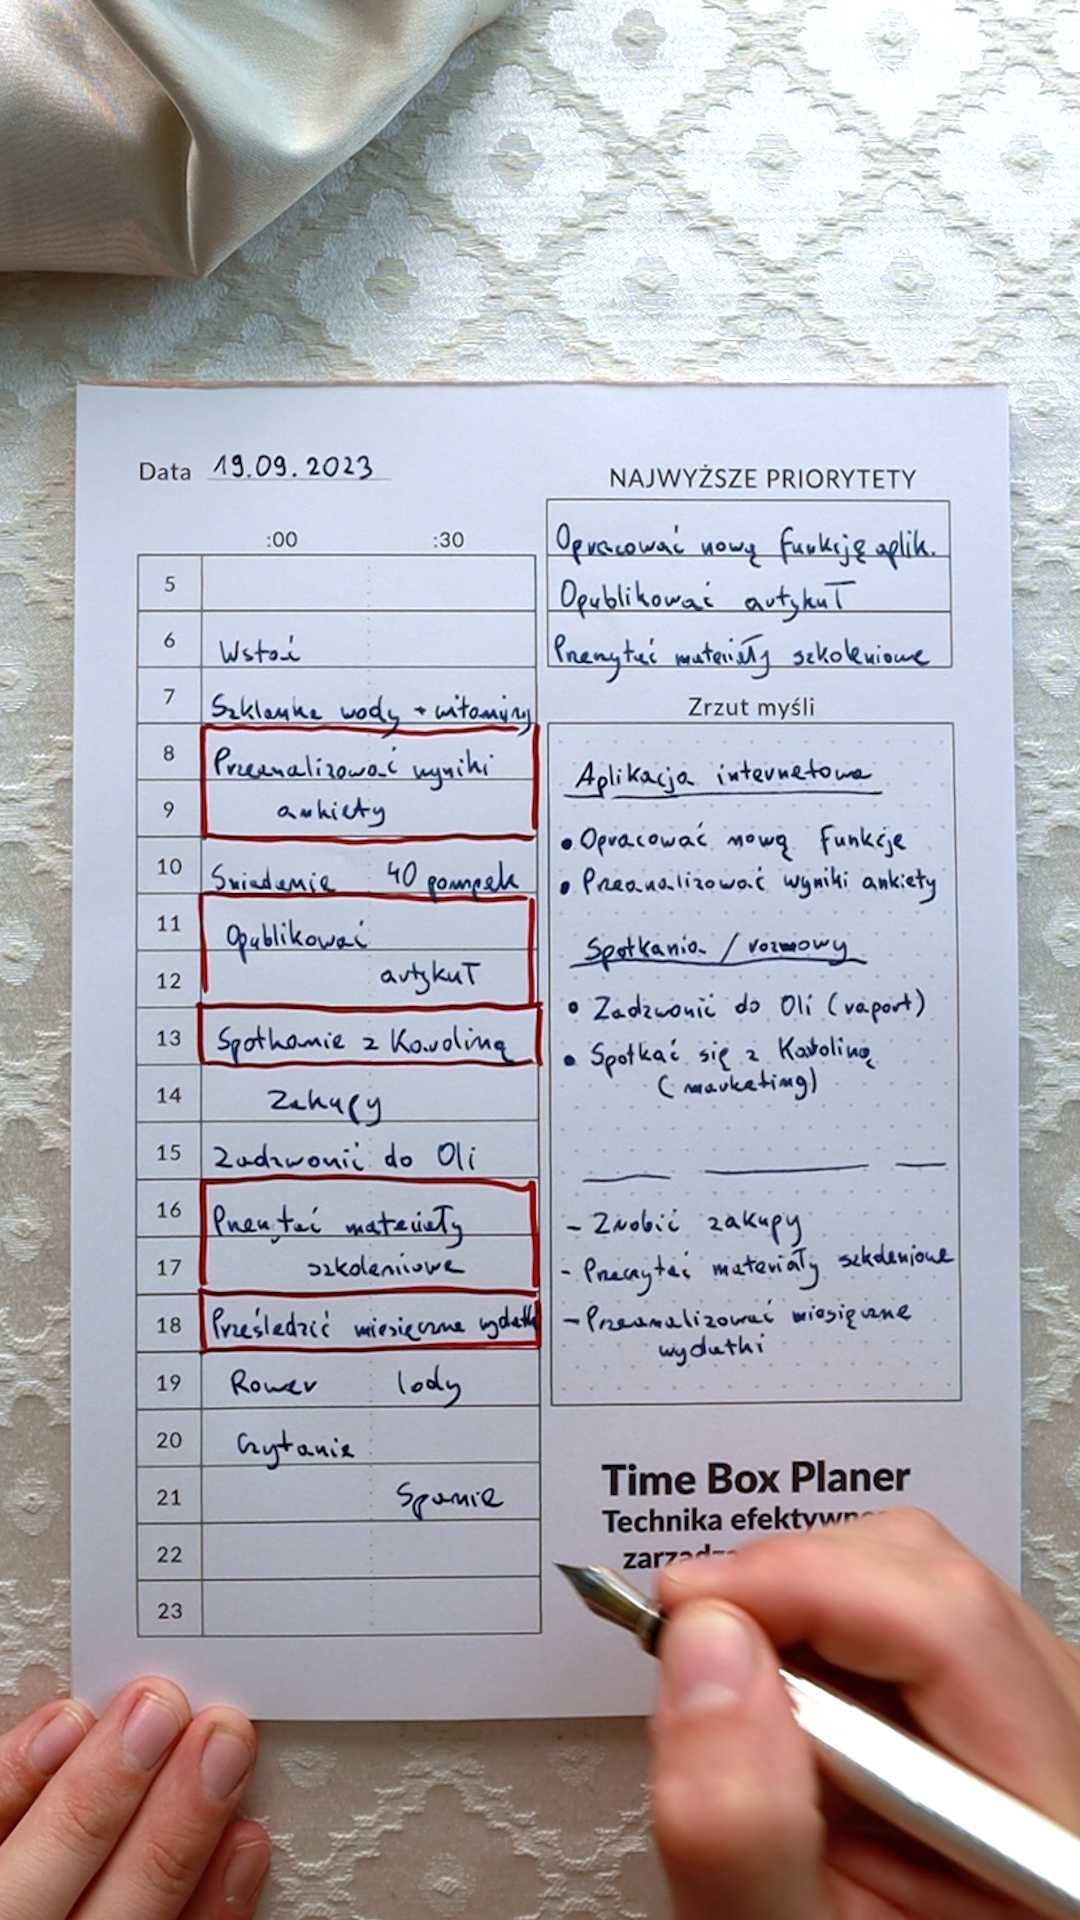 Data 19.09.2023
:00 :30
5
6 Wstać
7 Szklanka wody + witaminy
8 Przeanalizować wyniki
9 ankiety
10 Śniadanie 40 pompek
11 Opublikować
12 artykuł
13 Spotkanie z Karoliną
14 Zakupy
15 Zadzwonić do Oli
16 Przeczytać materiały
17 szkoleniowe
18 Prześledzić miesięczne wydatki
19 Rower lody
20 Czytanie
21 Spanie
22
23
NAJWYŻSZE PRIORYTETY
Opracować nową funkcję aplik.
Opublikować artykuł
Przeczytać materiały szkoleniowe
Zrzut myśli
Aplikacja internetowa
• Opracować nową funkcje
• Przeanalizować wyniki ankiety
Spotkania / rozmowy
• Zadzwonić do Oli (raport)
• Spotkać się z Karoliną
(marketing)
- Zrobić zakupy
- Przeczytać materiały szkoleniowe
- Przeanalizować miesięczne
wydatki
Time Box Planer
Technika